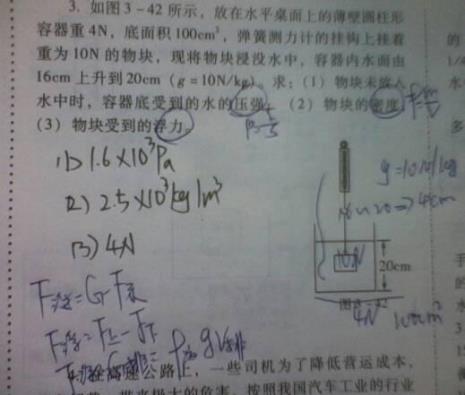 3. 如图3-42所示，放在水平桌面上的薄壁圆柱形
容器重4N，底面积100cm²，弹簧测力计的挂钩上挂着
重为10N的物块，现将物块浸没水中，容器内水面由
16cm上升到20cm（g=10N/kg）。求：（1）物块未放入
水中时，容器底受到的水的压强（2）物块的密度
（3）物块受到的浮力。
1) 1.6×10³Pa
2) 2.5×10³kg/m³
3) 4N
g=10N/kg
4cm
10N
20cm
4N
100cm²
F浮=G-F
F浮=F
gV排
公路上，一些司机为了降低营运成本，
的危害。按照我国汽车工业的行业